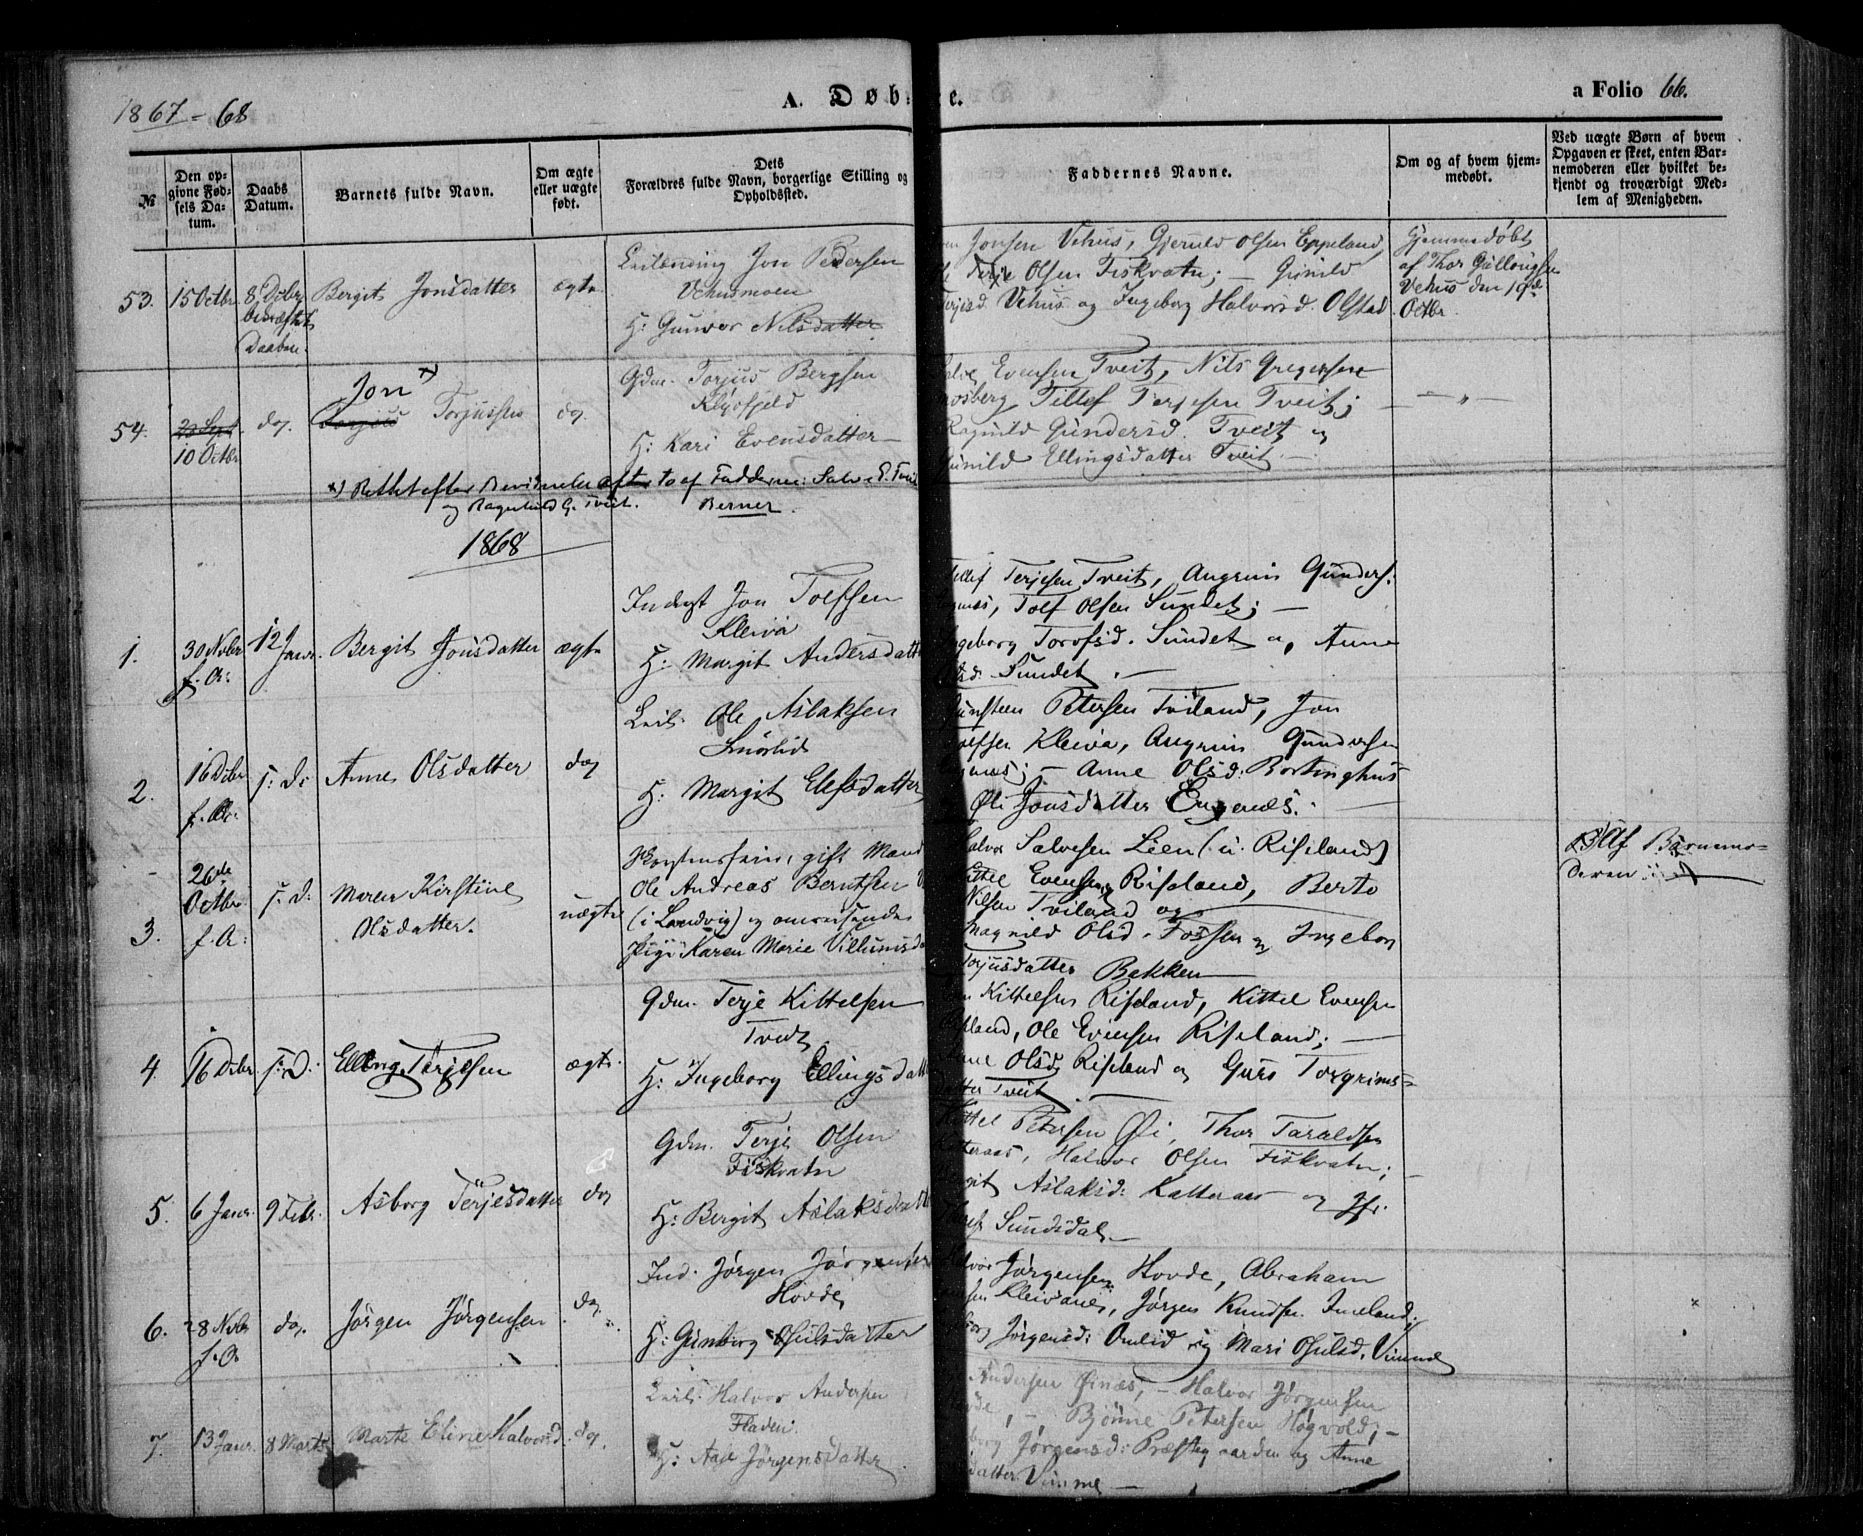 1867-68
A. Døb e.
a Folio 66.
№
Den op-
givne Fød-
sels Da-
tum.
Daabs
Datum.
Barnets fulde Navn.
Om ægte
eller uægte
født.
Dets
Forældres fulde Navn, borgerlige Stilling og
Opholdssted.
Faddernes Navne.
Om og af hvem hjem-
medøbt.
Ved uægte Børn af hvem
Opgaven er skeet, enten Bar-
nemoderen eller hvilket be-
kjendt og troværdigt Med-
lem af Menigheden.
53.
15 Octbr
8 Dcbr
Daaben.
Bergit Jonsdatter
ægte
Jon Pedersen
Vehusmoen
H: Gunvor Nilsdatter
Jonsen Vehus, Gjeruld Olsen Eppeland,
Terje Olsen Fiskvatn; — Gunild
Terjesd. Vehus og Ingeborg Halvorsd. Olstad
Hjemmedøbt
af Thor Gulleugsen
Vehus den 19de
Octbr.
54.
23 Sept
10 Octbr
do.
Jon x)
Torjus Torjussen
do.
Gdm. Torjus Bergsen
H: Kari Evensdatter
Evensen Tveit, Nils Gregersen
Tellef Terjesen Tveit;
Ragnild Gundersd. Tveit og
Gunild Ellingsdatter Tveit.
— " —
x) Rettet efter to af Fadderne: Salve E. Tveit
og Ragnhild G. Tveit. Berner.
1868
1.
30 Novbr
f. A:
12 Janr.
Bergit Jonsdatter
ægte
Inderst Jon Tolfsen
Kleiva
H: Margit Andersdatt
Tellef Terjesen Tveit, Angrim Gunders.
Tolf Olsen Sundet; —
Ingeborg Torofsd. Sundet og Anne
Olsd. Sundet.
2.
16 Dcbr
f. A.
s. D:
Anne Olsdatter
do
Leil. Ole Aslaksen
H: Margit Elefsdatter
Gunsteen Petersen Tviland, Jon
Tolfsen Kleiva, Angrim Gundersen
— Anne Olsd: Bortinghus
Øli Jonsdatter Engenes.
3.
26de
Octbr.
f. A:
s. D:
Maren Kirstine
Olsdatter.
uægte
gift Mand
Ole Andreas Berntsen
(i Landvig) og omreisende
Pige Karen Marie Villumsd
Salve Salvesen Lien (u. Risland)
Kittel Evensen Risland, Berte
Nilsen Tviland og
Magnild Olsd. Fossen og Ingebor
Torjusdatter Bakken
Af Barnemo-
deren
4.
16 Dcbr
s. D:
Elling Terjesen
ægte.
Gdm. Terje Kittelsen
Tveit
H: Ingeborg Ellingsdatt
Kittelsen Risland, Kittel Evensen
Risland, Ole Evensen Risland; —
Anne Olsd. Risland og Guro Torgrims-
datter Tveit
5.
6 Janr.
9 Febr.
Asborg Terjesdatter
do
Gdm. Terje Olsen
Fiskvatn
H: Bergit Aslaksdatt
Kittel Petersen Øi, Thor Taraldsen
Katteraas, Halvor Olsen Fiskvatn;
Aslaksd: Katteraas og Jfr.
Sundsdal.
6.
28 Novbr
f. A.
do.
Jørgen Jørgensen
do.
Ind. Jørgen Jørgensen
Hovde
H: Gunborg Osulsdatter
Halvor Jørgensen Hovde, Abraham
Kleivanes, Jørgen Knudsen Imeland;
Jørgensd: Omlid og Mari Osulsd. Vimme
7.
13 Janr.
8 Marts
Marte Eline Halvorsd.
do.
Leil. Halvor Andersen
Fladen.
H: Aase Jørgensdatter
Andersen Øinæs, — Halvor Jørgensen
Hovde, —, Bjønne Petersen Høgvold; —
Jørgensd: Præstegaarden og Anne
datter Vimme —